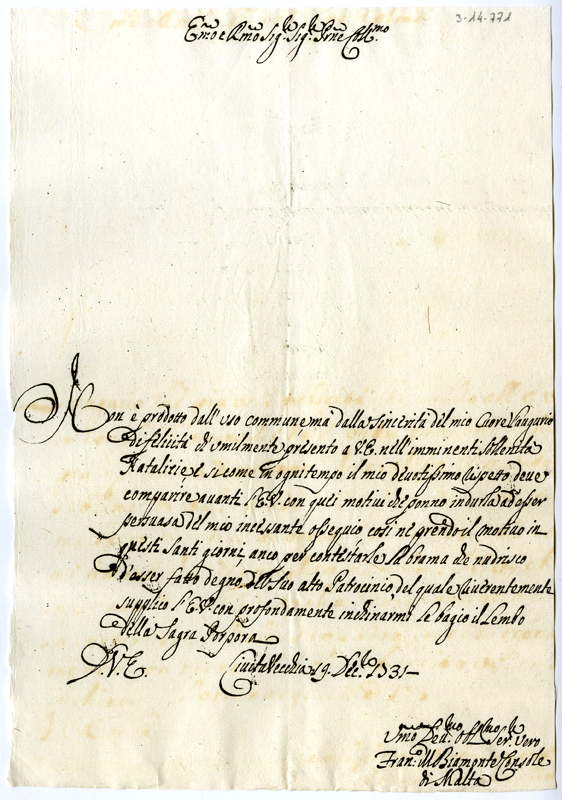 3-14-771
Em̃o e Rm̃o Sig.re Sig.re Prñe Coll.mo
Non è prodotto dall'uso commune, mà dalla sincerità del mio Cuore l'augurio
di felicità ch'umilmente presento a V.E. nell'imminenti sollenità
Natalizie, e si come in ogni tempo il mio devotissimo rispetto deve
comparire avanti l'E.V. con quei motivi che ponno indurla ad esser
persuasa del mio incessante ossequio così ne prendo il motivo in
questi santi giorni, anco per contestarle la brama che nudrisco
d'esser fatto degno del suo alto Patrocinio, del quale riverentemente
supplico l'E.V. con profondamente inchinarmi le bagio il Lembo
della Sagra Porpora
D.V.E. Civita Vecchia 19. Dec.e 1731
Um̃o Dev.mo Obl.mo Ser.re Vero
Fran: M Biamonte Console
di Malta